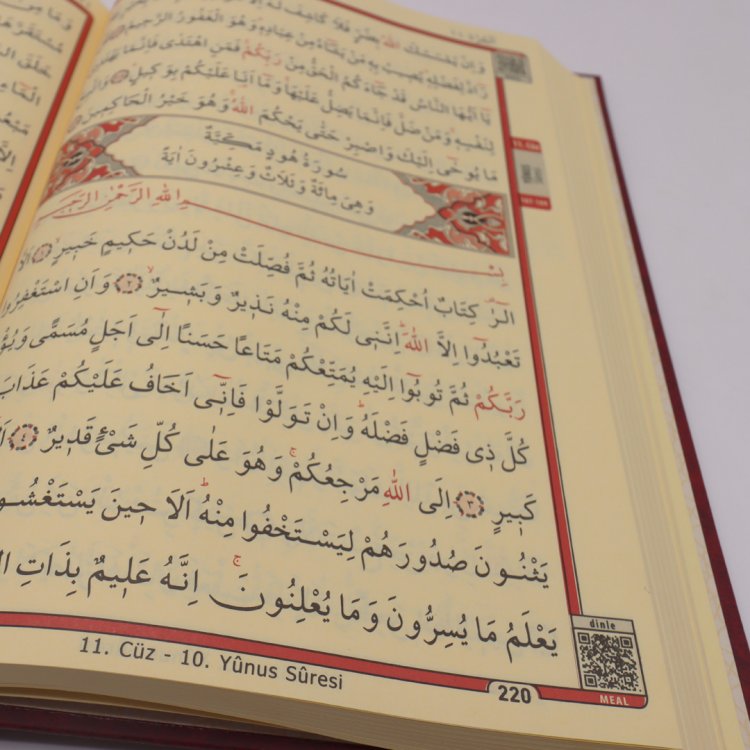 وَاِنْ يَمْسَسْكَ اللّٰهُ بِضُرٍّ فَلَا كَاشِفَ لَهُٓ اِلَّا
رَٓادَّ لِفَضْلِهٖ يُصٖيبُ بِهٖ مَنْ يَشَٓاءُ مِنْ عِبَادِهٖ وَهُوَ الْغَفُورُ الرَّحٖيمُ
يَٓا اَيُّهَا النَّاسُ قَدْ جَٓاءَكُمُ الْحَقُّ مِنْ رَبِّكُمْ فَمَنِ اهْتَدٰى فَاِنَّمَا يَهْتَدٖي
لِنَفْسِهٖ وَمَنْ ضَلَّ فَاِنَّمَا يَضِلُّ عَلَيْهَا وَمَٓا اَنَا عَلَيْكُمْ بِوَكٖيلٍ
مَا يُوحٰٓى اِلَيْكَ وَاصْبِرْ حَتّٰى يَحْكُمَ اللّٰهُ وَهُوَ خَيْرُ الْحَاكِمٖينَ
سُورَةُ هُودٍ مَكِّيَّةٌ
وَهِيَ مِائَةٌ وَثَلَاثٌ وَعِشْرُونَ اٰيَةً
بِسْمِ اللّٰهِ الرَّحْمٰنِ الرَّحٖيمِ
الٓرٰ كِتَابٌ اُحْكِمَتْ اٰيَاتُهُ ثُمَّ فُصِّلَتْ مِنْ لَدُنْ حَكٖيمٍ خَبٖيرٍ ﴿١﴾ اَلَّا
تَعْبُدُٓوا اِلَّا اللّٰهَ اِنَّنٖي لَكُمْ مِنْهُ نَذٖيرٌ وَبَشٖيرٌ ﴿٢﴾ وَاَنِ اسْتَغْفِرُوا
رَبَّكُمْ ثُمَّ تُوبُٓوا اِلَيْهِ يُمَتِّعْكُمْ مَتَاعًا حَسَنًا اِلٰٓى اَجَلٍ مُسَمًّى وَيُؤْتِ
كُلَّ ذٖي فَضْلٍ فَضْلَهُ وَاِنْ تَوَلَّوْا فَاِنّٖٓي اَخَافُ عَلَيْكُمْ عَذَابَ
كَبٖيرٍ ﴿٣﴾ اِلَى اللّٰهِ مَرْجِعُكُمْ وَهُوَ عَلٰى كُلِّ شَيْءٍ قَدٖيرٌ ﴿٤﴾
يَثْنُونَ صُدُورَهُمْ لِيَسْتَخْفُوا مِنْهُ اَلَا حٖينَ يَسْتَغْشُونَ
يَعْلَمُ مَا يُسِرُّونَ وَمَا يُعْلِنُونَ اِنَّهُ عَلٖيمٌ بِذَاتِ
dinle
MEAL
11. Cüz - 10. Yûnus Sûresi
220